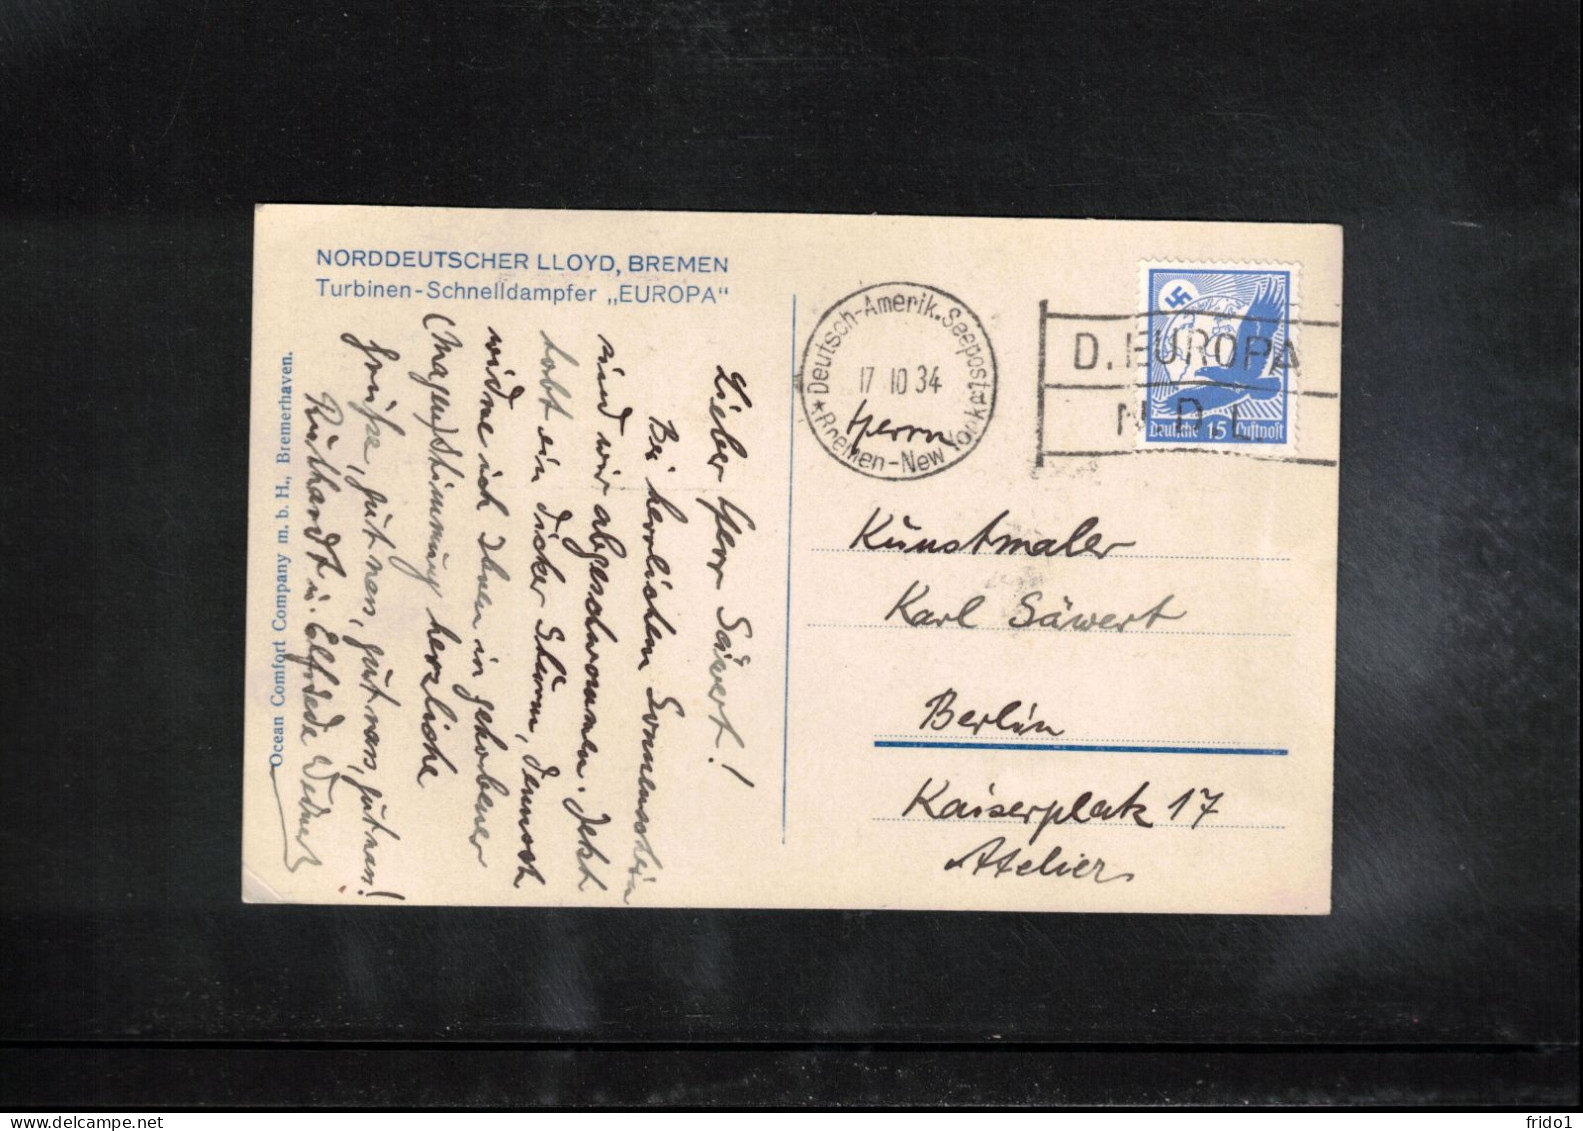 NORDDEUTSCHER LLOYD, BREMEN
Turbinen-Schnelldampfer „EUROPA“
Ocean Comfort Company m. b. H., Bremerhaven.
Lieber Herr Säwert!
Bei herrlichem Sonnenschein
sind wir abgeschwommen. Jetzt
tobt ein dicker Sturm, dennoch
widme ich Ihnen in gehobener
(Magen) Stimmung herzliche
Grüsse, gut nass, gut nass, gut nass, gut nass!
Ruthardt u. Elfriede
Deutsch-Amerik. Seepost
Bremen-New York
17 10 34
D. EUROPA
N.D.L
Deutsche 15 Luftpost
Herrn
Kunstmaler
Karl Säwert
Berlin
Kaiserplatz 17
Atelier
frido1